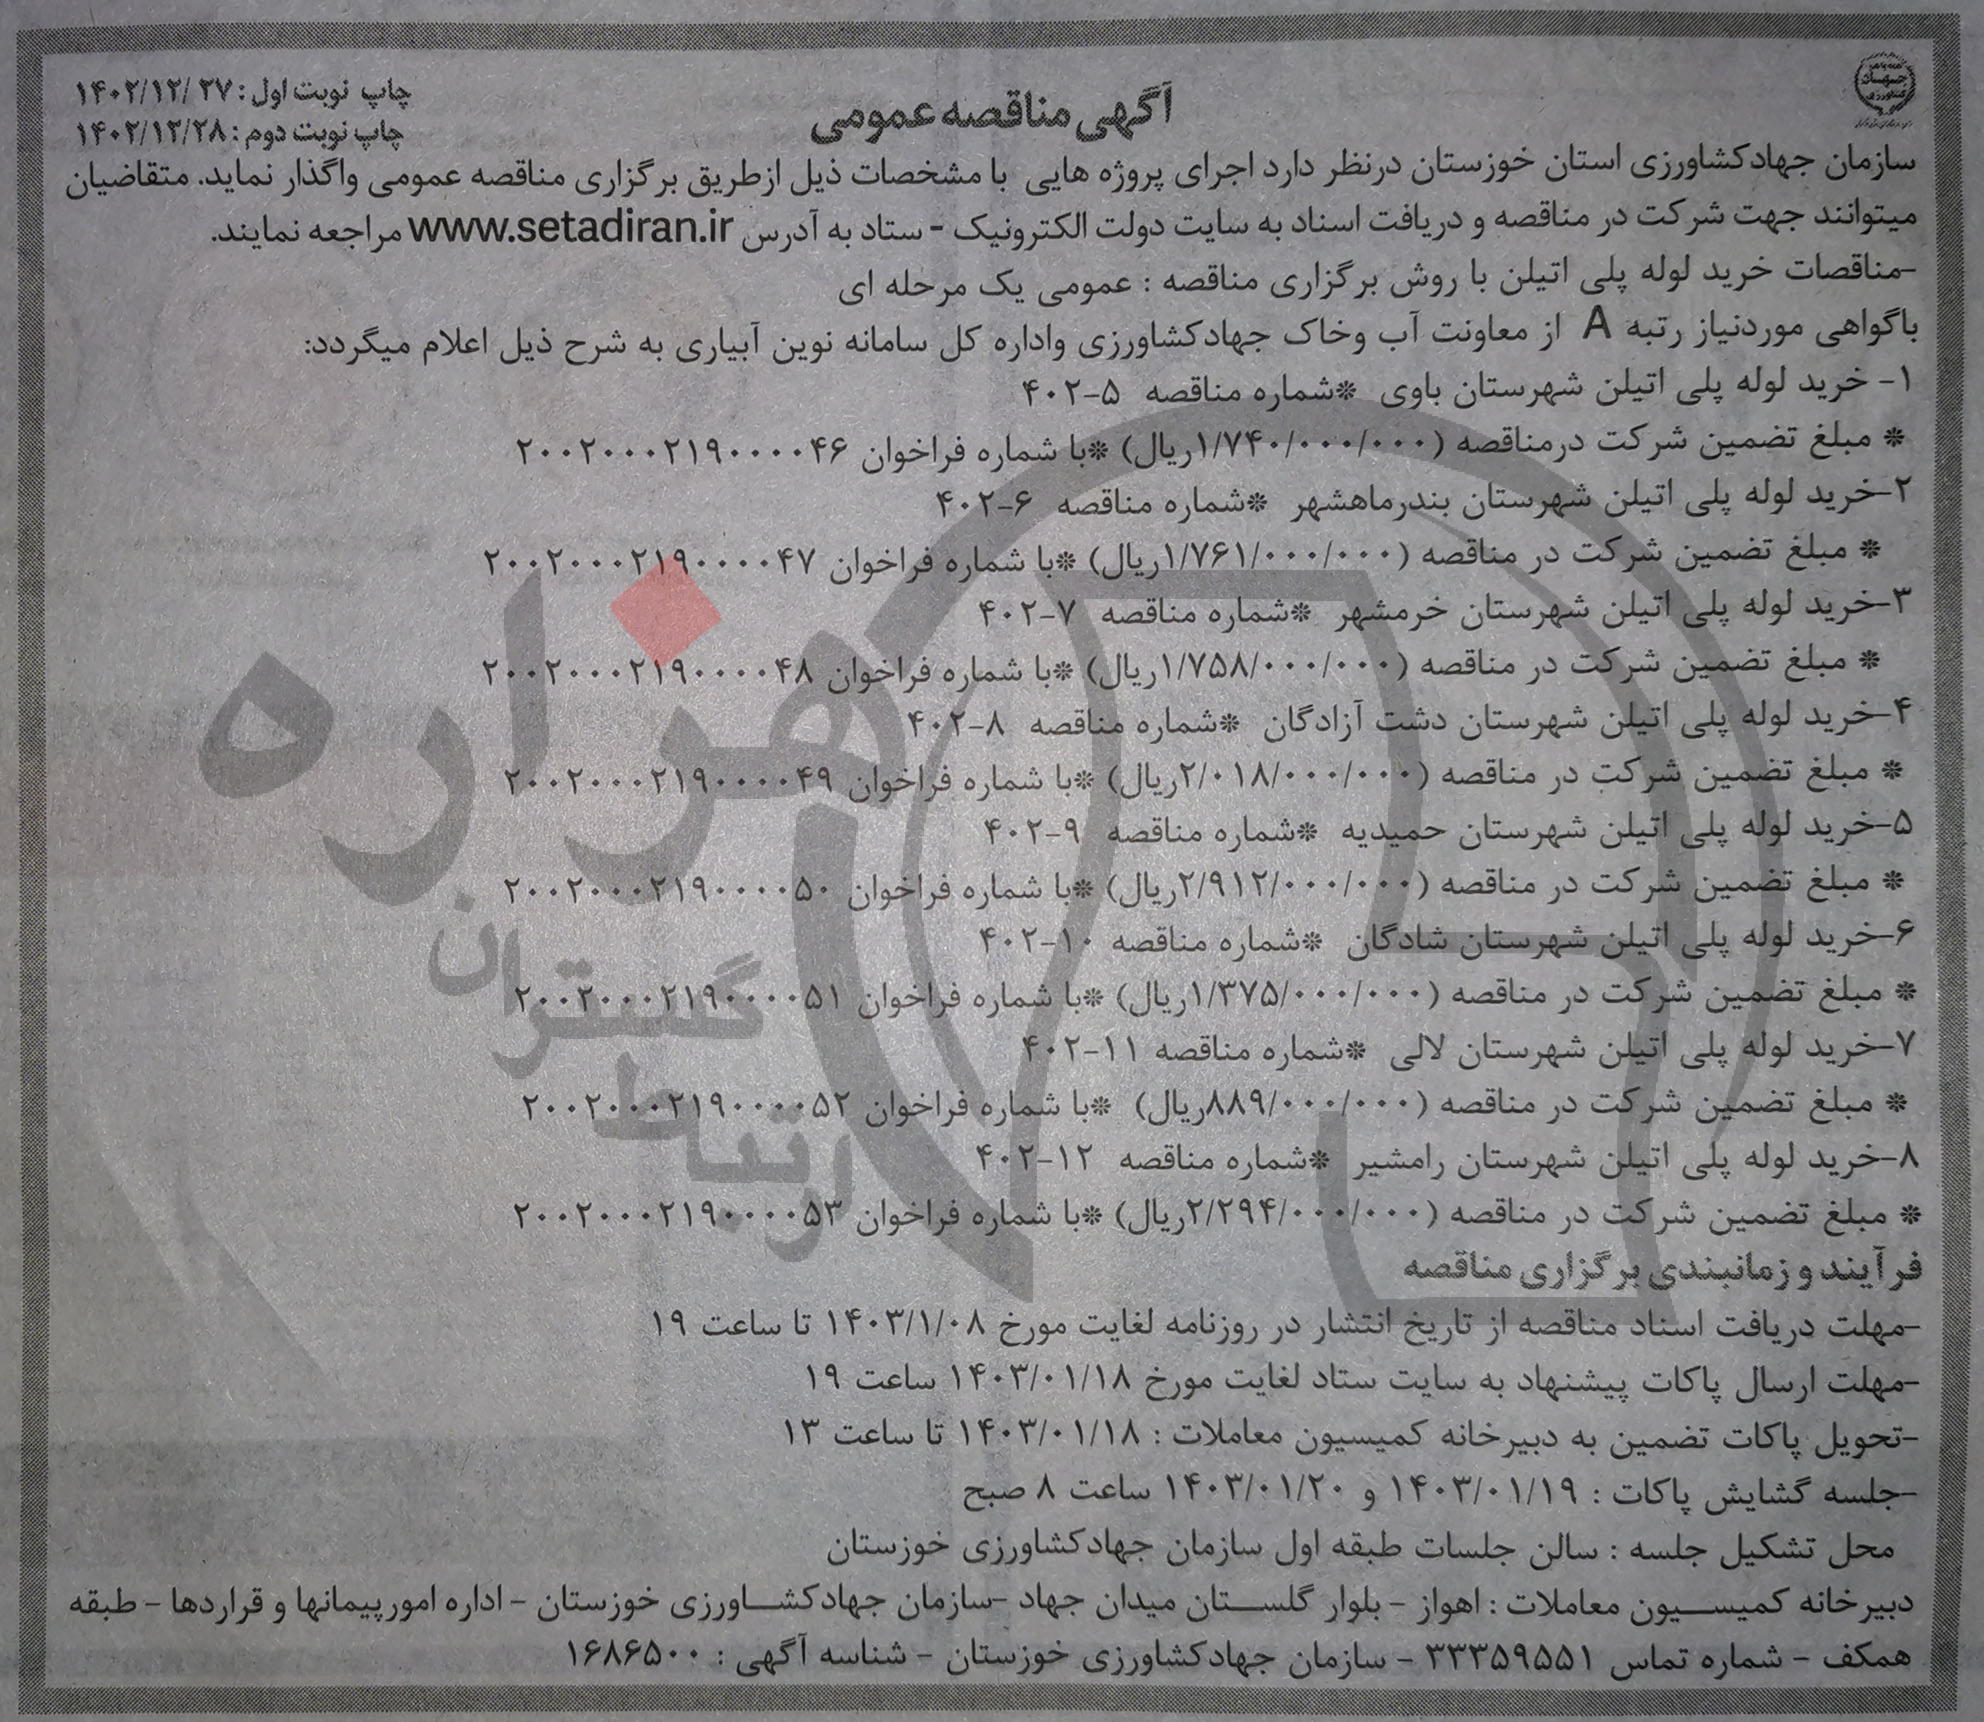 آگهی مناقصه عمومی
چاپ نوبت اول: ۱۴۰۲/۱۲/ ۲۷
چاپ نوبت دوم: ۱۴۰۲/۱۲/۲۸
سازمان جهادکشاورزی استان خوزستان درنظر دارد اجرای پروژه هایی با مشخصات ذیل ازطریق برگزاری مناقصه عمومی واگذار نماید. متقاضیان
میتوانند جهت شرکت در مناقصه و دریافت اسناد به سایت دولت الکترونیک - ستاد به آدرس www.setadiran.ir مراجعه نمایند.
-مناقصات خرید لوله پلی اتیلن با روش برگزاری مناقصه : عمومی یک مرحله ای
باگواهی موردنیاز رتبه A از معاونت آب وخاک جهادکشاورزی واداره کل سامانه نوین آبیاری به شرح ذیل اعلام میگردد:
۱- خرید لوله پلی اتیلن شهرستان باوی *شماره مناقصه ۵-۴۰۲
* مبلغ تضمین شرکت درمناقصه (۱/۷۴۰/۰۰۰/۰۰۰ریال) *با شماره فراخوان ۲۰۰۲۰۰۰۲۱۹۰۰۰۰۴۶
۲-خرید لوله پلی اتیلن شهرستان بندرماهشهر *شماره مناقصه ۶-۴۰۲
* مبلغ تضمین شرکت در مناقصه (۱/۷۶۱/۰۰۰/۰۰۰ریال) *با شماره فراخوان ۲۰۰۲۰۰۰۲۱۹۰۰۰۰۴۷
۳-خرید لوله پلی اتیلن شهرستان خرمشهر *شماره مناقصه ۷-۴۰۲
* مبلغ تضمین شرکت در مناقصه (۱/۷۵۸/۰۰۰/۰۰۰ریال) *با شماره فراخوان ۲۰۰۲۰۰۰۲۱۹۰۰۰۰۴۸
۴-خرید لوله پلی اتیلن شهرستان دشت آزادگان *شماره مناقصه ۸-۴۰۲
* مبلغ تضمین شرکت در مناقصه (۲/۰۱۸/۰۰۰/۰۰۰ریال) *با شماره فراخوان ۲۰۰۲۰۰۰۲۱۹۰۰۰۰۴۹
۵-خرید لوله پلی اتیلن شهرستان حمیدیه *شماره مناقصه ۹-۴۰۲
* مبلغ تضمین شرکت در مناقصه (۲/۹۱۲/۰۰۰/۰۰۰ریال) *با شماره فراخوان ۲۰۰۲۰۰۰۲۱۹۰۰۰۰۵۰
۶-خرید لوله پلی اتیلن شهرستان شادگان *شماره مناقصه ۱۰-۴۰۲
* مبلغ تضمین شرکت در مناقصه (۱/۳۷۵/۰۰۰/۰۰۰ریال) *با شماره فراخوان ۲۰۰۲۰۰۰۲۱۹۰۰۰۰۵۱
۷-خرید لوله پلی اتیلن شهرستان لالی *شماره مناقصه ۱۱-۴۰۲
* مبلغ تضمین شرکت در مناقصه (۸۸۹/۰۰۰/۰۰۰ریال) *با شماره فراخوان ۲۰۰۲۰۰۰۲۱۹۰۰۰۰۵۲
۸-خرید لوله پلی اتیلن شهرستان رامشیر *شماره مناقصه ۱۲-۴۰۲
* مبلغ تضمین شرکت در مناقصه (۲/۲۹۴/۰۰۰/۰۰۰ریال) *با شماره فراخوان ۲۰۰۲۰۰۰۲۱۹۰۰۰۰۵۳
فرآیند و زمانبندی برگزاری مناقصه
-مهلت دریافت اسناد مناقصه از تاریخ انتشار در روزنامه لغایت مورخ ۱۴۰۳/۱/۰۸ تا ساعت ۱۹
-مهلت ارسال پاکات پیشنهاد به سایت ستاد لغایت مورخ ۱۴۰۳/۰۱/۱۸ ساعت ۱۹
-تحویل پاکات تضمین به دبیرخانه کمیسیون معاملات : ۱۴۰۳/۰۱/۱۸ تا ساعت ۱۳
-جلسه گشایش پاکات : ۱۴۰۳/۰۱/۱۹ و ۱۴۰۳/۰۱/۲۰ ساعت ۸ صبح
محل تشکیل جلسه : سالن جلسات طبقه اول سازمان جهادکشاورزی خوزستان
دبیرخانه کمیسیون معاملات : اهواز - بلوار گلستان میدان جهاد -سازمان جهادکشاورزی خوزستان - اداره امورپیمانها و قراردها - طبقه
همکف - شماره تماس ۳۳۳۵۹۵۵۱ - سازمان جهادکشاورزی خوزستان - شناسه آگهی : ۱۶۸۶۵۰۰
هزاره
گستران
ارتباط